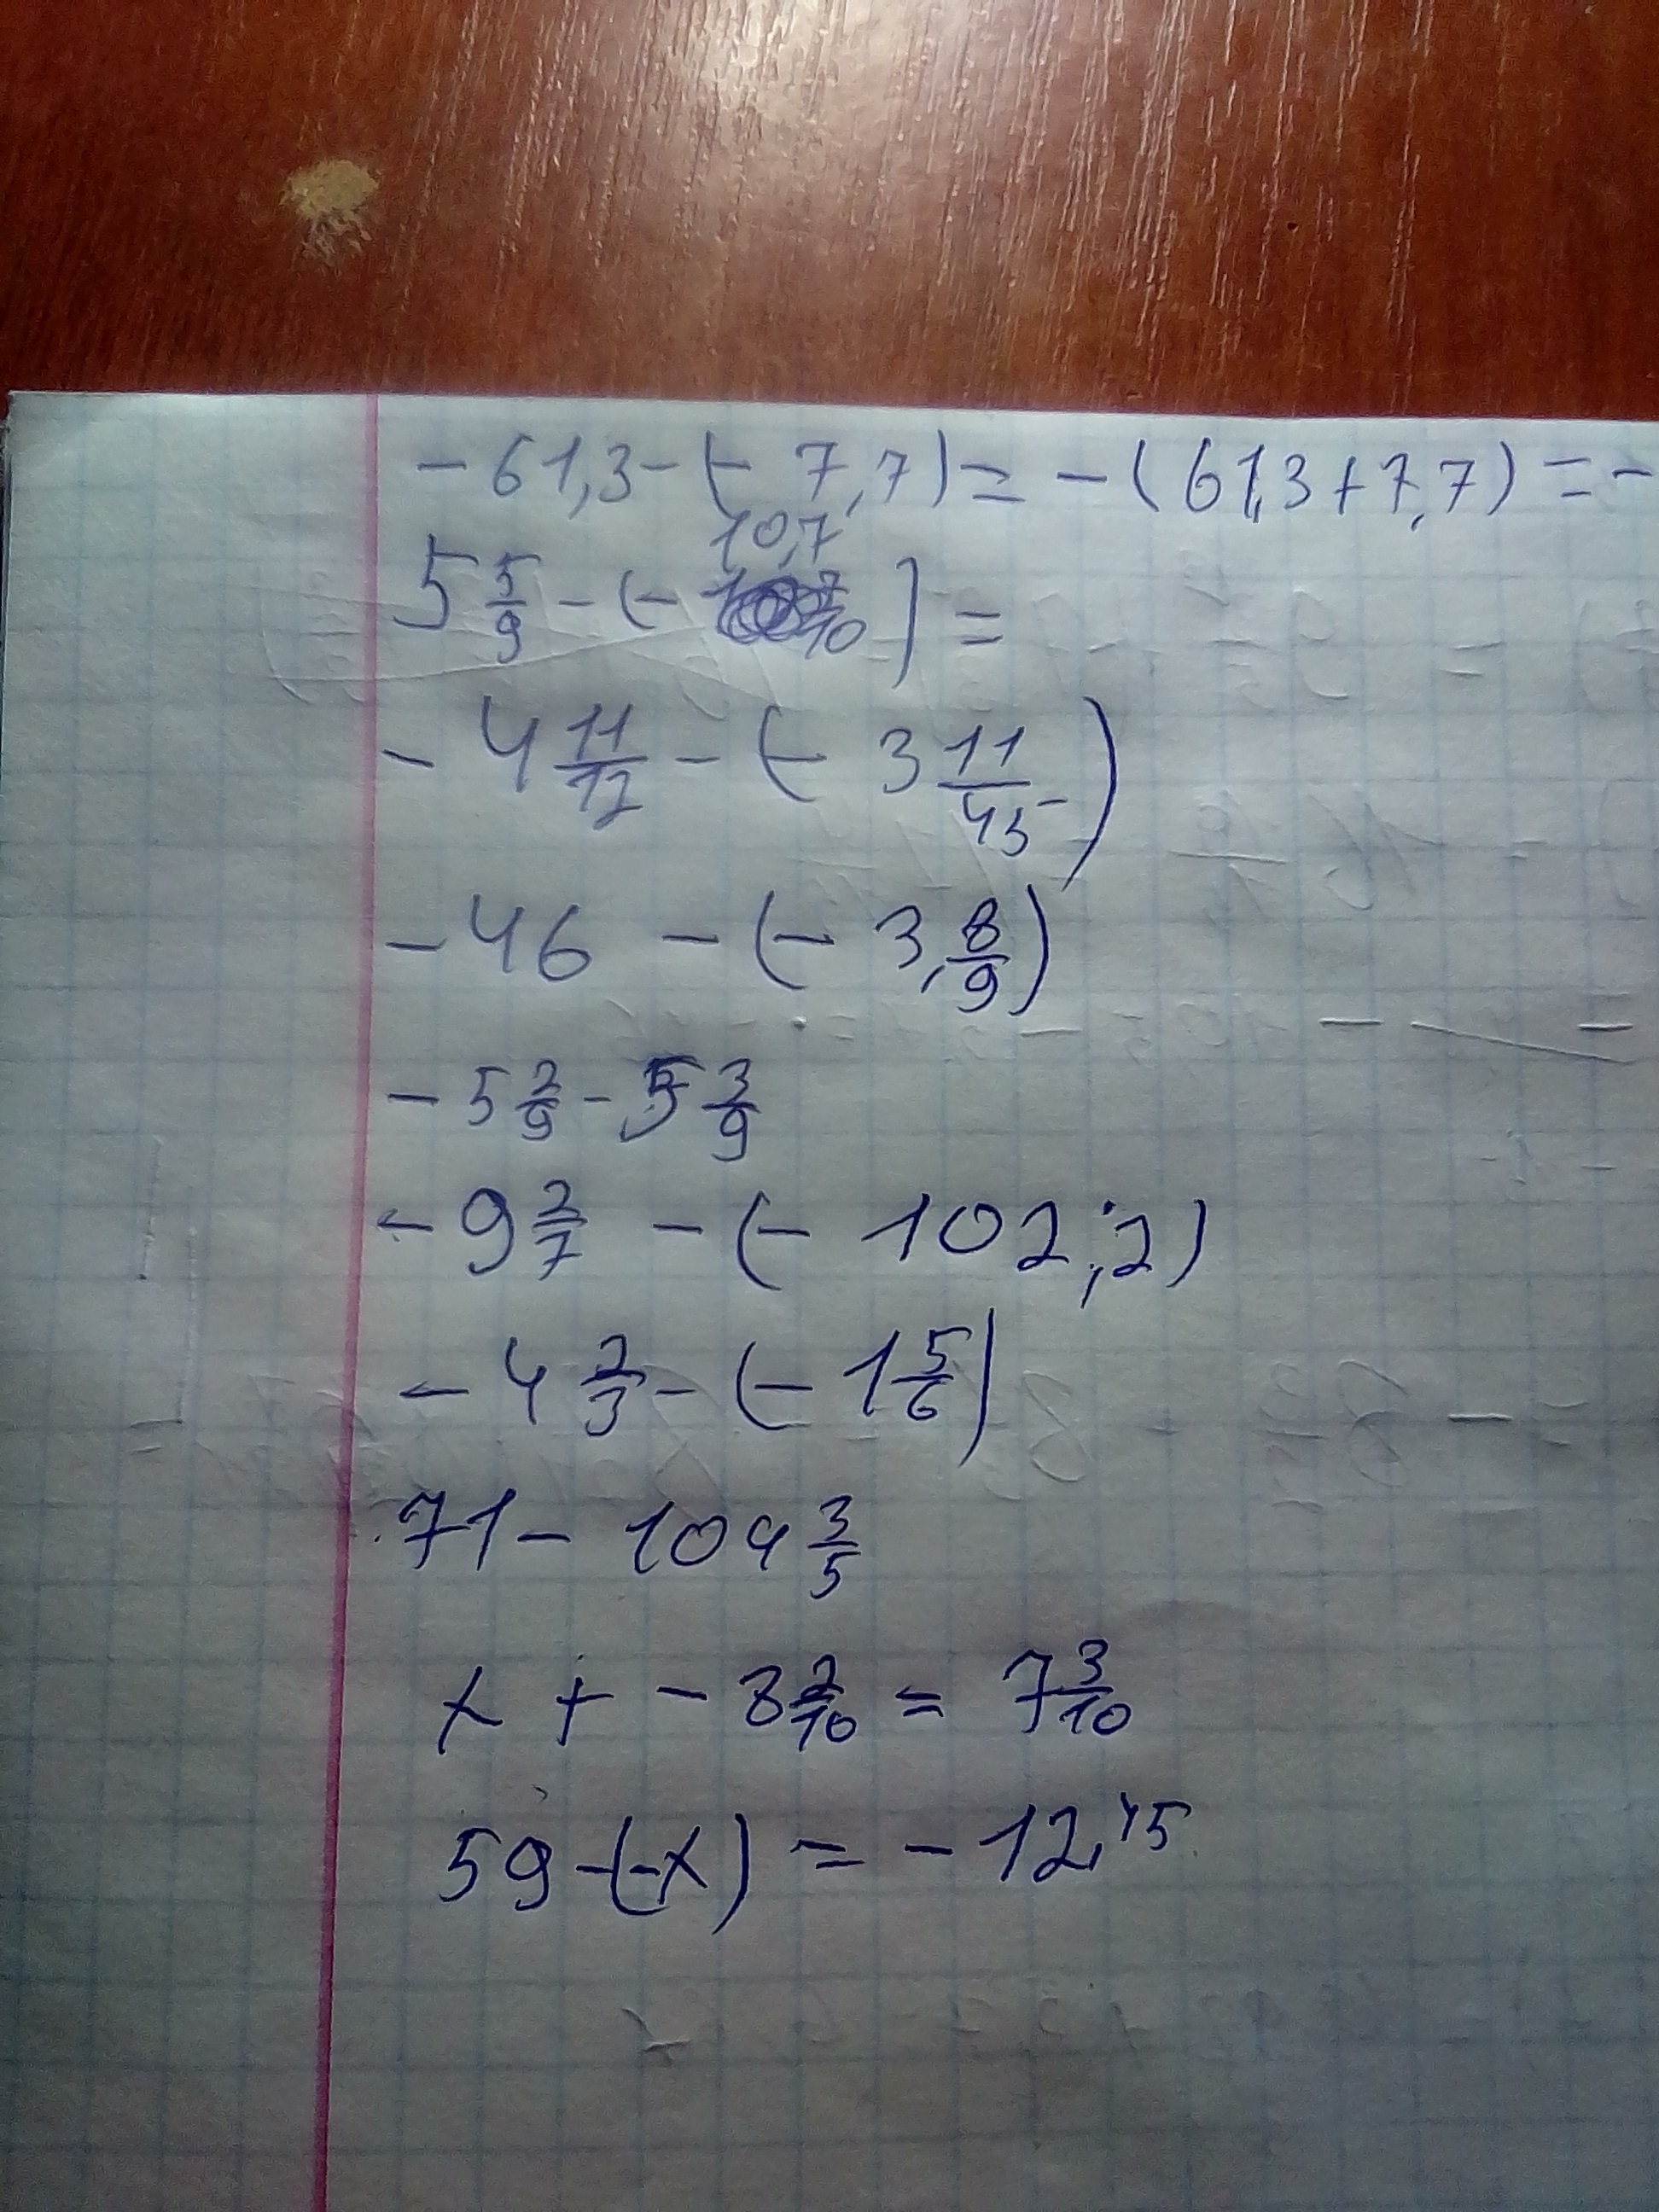 -61,3-(-7,7)=-(61,3+7,7)=-
10,7
5 5/9-(- )=
-4 11/12-(-3 11/45)
-46-(-3,8/9)
-5 2/9-5 3/9
-9 2/7-(-102,2)
-4 2/3-(-1 5/6)
71-104 3/5
x+-8 2/10=7 3/10
59-(-x)=-12,45